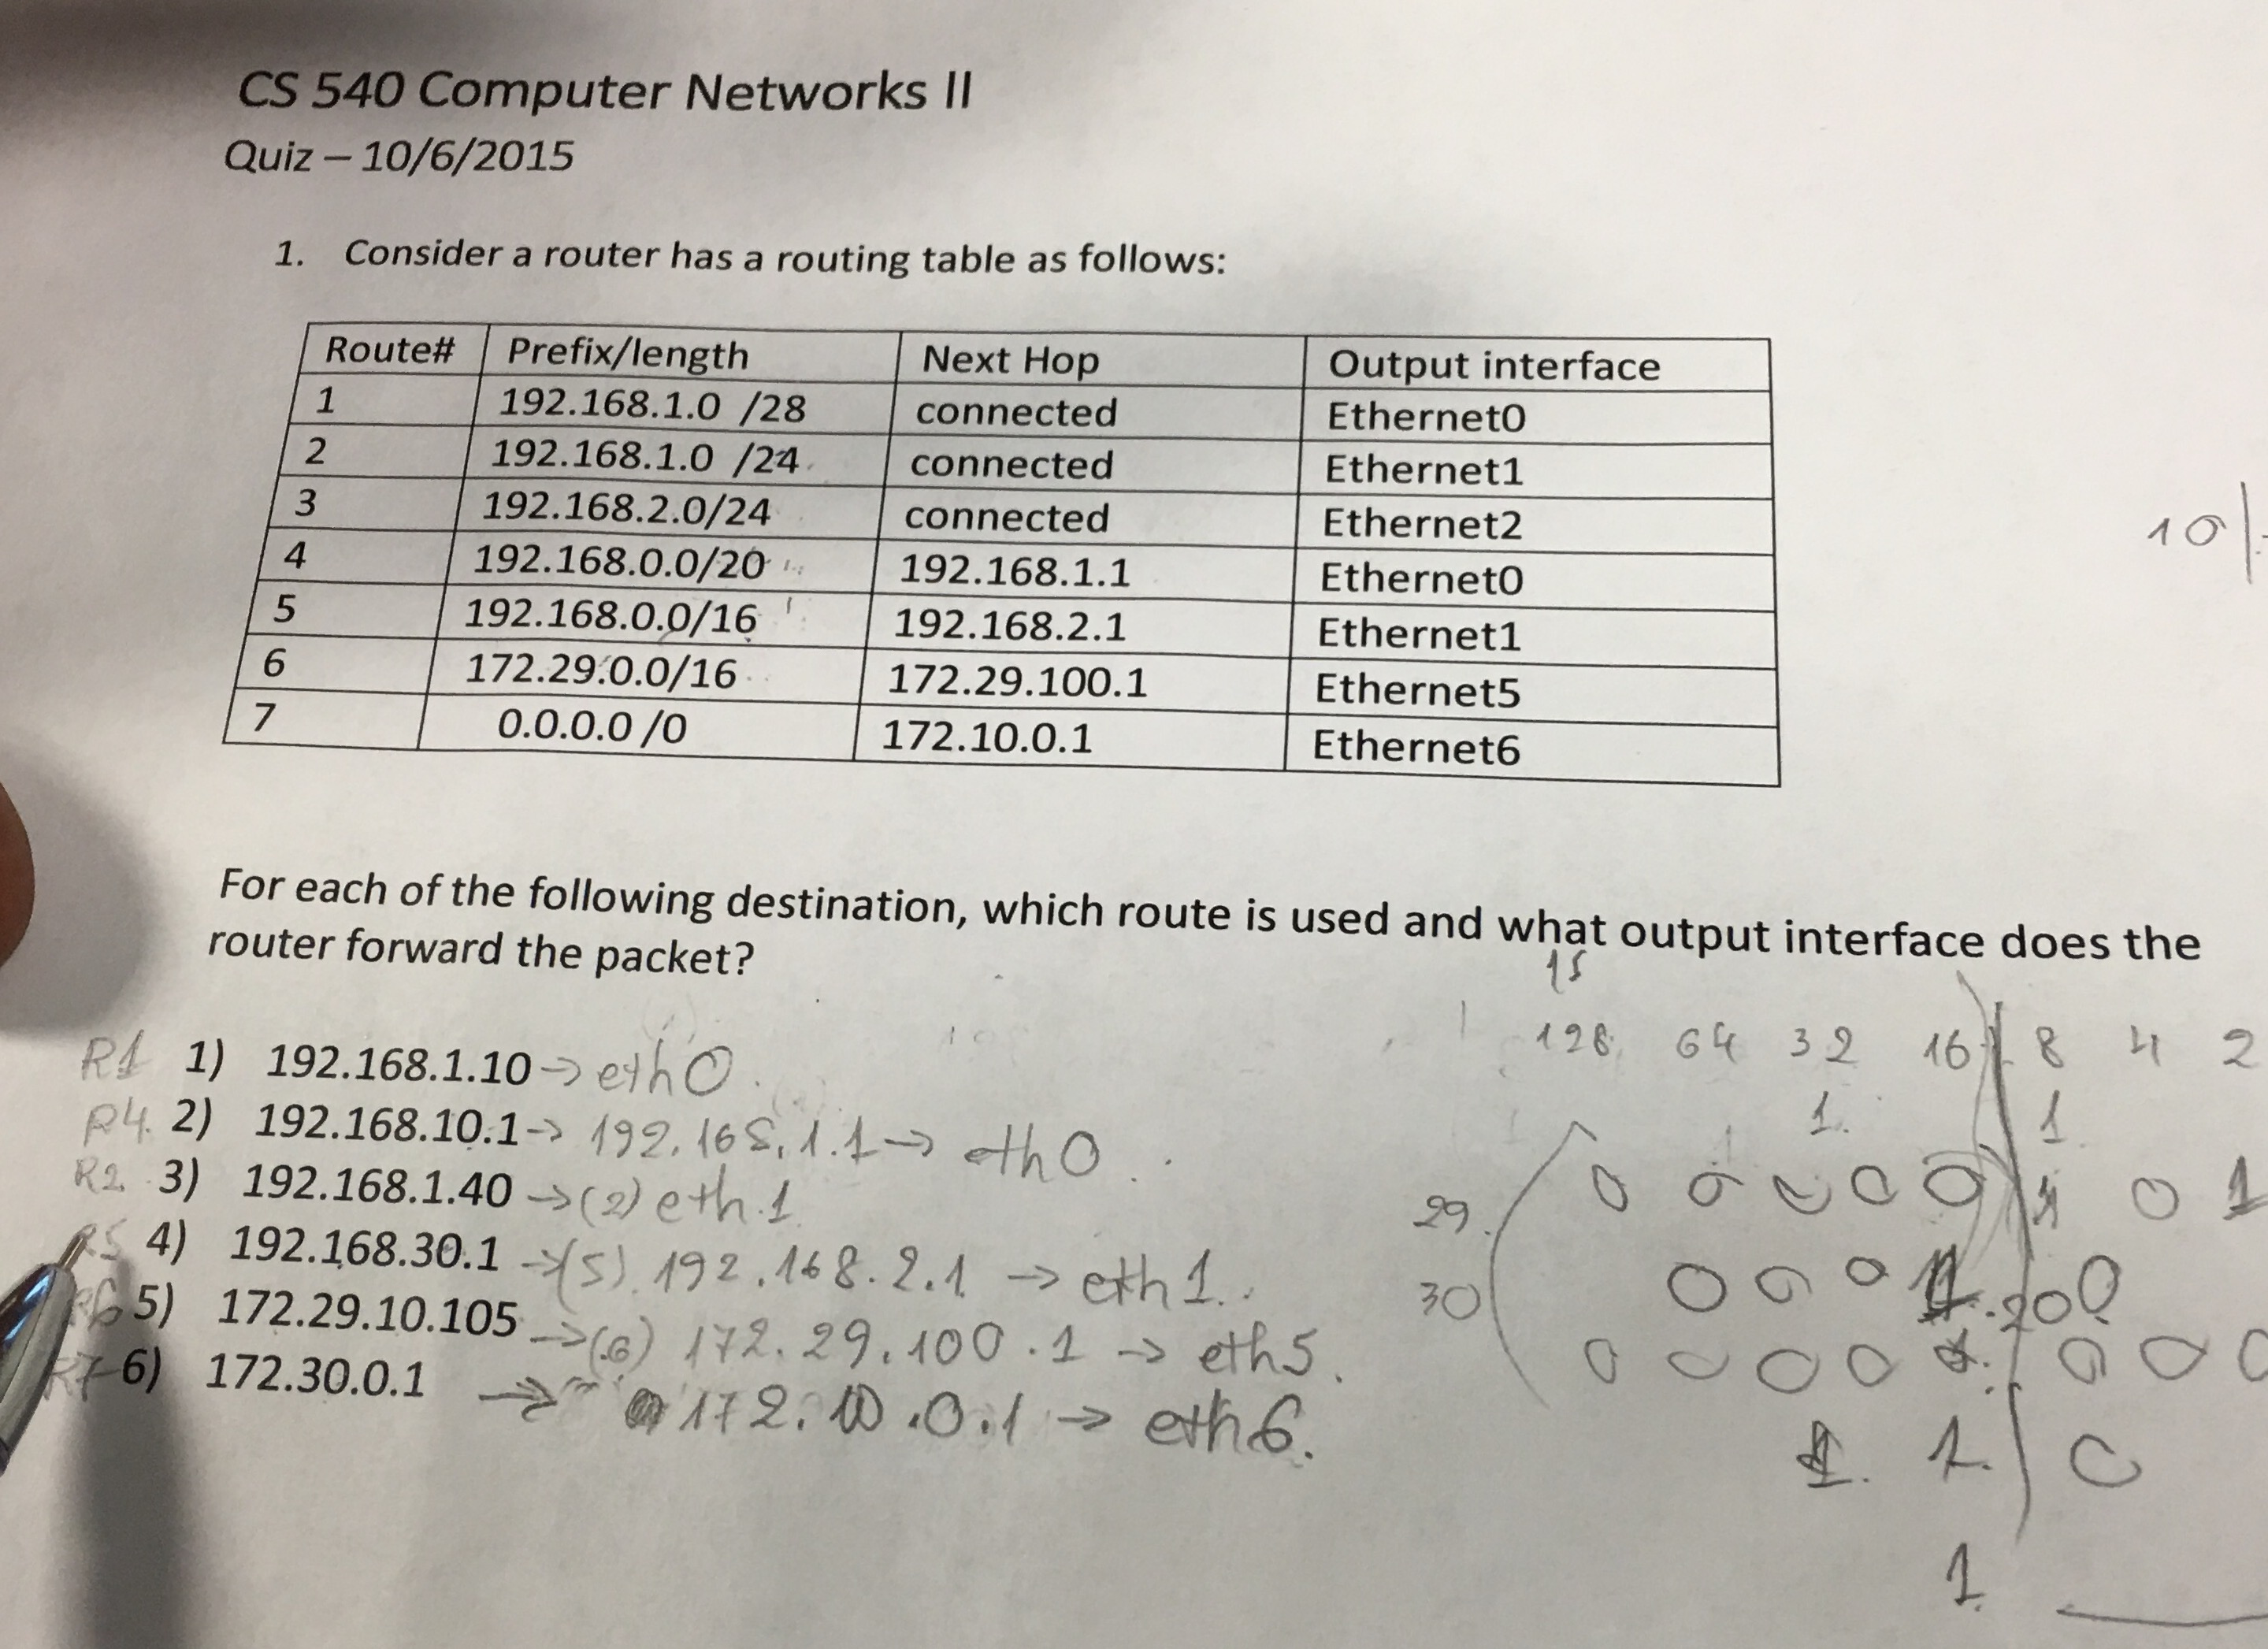 CS 540 Computer Networks II
Quiz – 10/6/2015
1. Consider a router has a routing table as follows:
Route# Prefix/length Next Hop Output interface
1 192.168.1.0 /28 connected Ethernet0
2 192.168.1.0 /24 connected Ethernet1
3 192.168.2.0/24 connected Ethernet2
4 192.168.0.0/20 192.168.1.1 Ethernet0
5 192.168.0.0/16 192.168.2.1 Ethernet1
6 172.29.0.0/16 172.29.100.1 Ethernet5
7 0.0.0.0 /0 172.10.0.1 Ethernet6
10
For each of the following destination, which route is used and what output interface does the
router forward the packet?
15
128 64 32 16 8 4 2
R1 1) 192.168.1.10 → eth0.
R4. 2) 192.168.10.1 → 192.168.1.1 → eth0.
R2 3) 192.168.1.40 → (2) eth.1
R5 4) 192.168.30.1 → (5). 192.168.2.1 → eth1.
R6 5) 172.29.10.105 → (6) 172.29.100.1 → eth5.
R7 6) 172.30.0.1 → 172.10.0.1 → eth6.
1. 1
29. 0 0 0 0 0 1 0 1
30 0 0 0 1 0
0 0 0 0 0 0 0
1. 1. 0
1